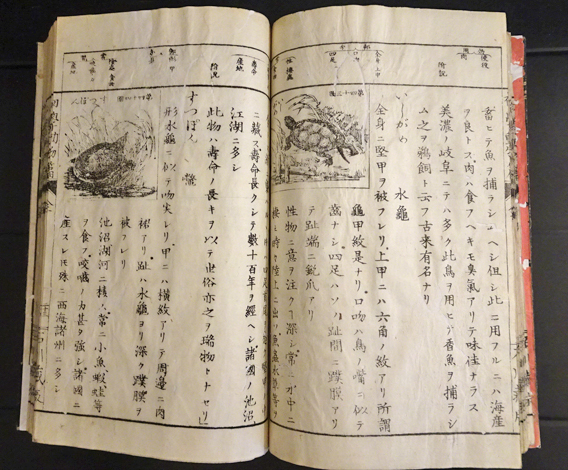 附説
四足
畜ヒテ魚ヲ捕ラシムヘシ但シ此ニ用フルニハ海産
ヲ良トス肉ハ食フヘキモ臭氣アリテ味佳ナラス
美濃ノ岐阜ニテハ多ク此鳥ヲ用ヒテ香魚ヲ捕ラシ
ム之ヲ鵜飼ト云フ古來有名ナリ
いしがめ 水龜
全身ニ堅甲ヲ被フレリ上甲ニハ六角ノ紋アリ所謂
龜甲紋是ナリ口吻ハ鳥ノ嘴ニ似テ
齒ナシ四足ハ 趾間ニ蹼膜アリ
テ趾端ニ鋭爪アリ
性物ニ意ヲ注クコト深シ常ニ水中ニ
棲ミ時々陸上ニ出ツ魚蟲水草等ヲ
第四十三圖
壽命
産地
附説
ス壽命長クシテ數十百年ヲ經ヘシ諸國ノ池沼
江湖ニ多シ
此物ハ壽命ノ長キヲ以テ世俗亦之ヲ瑞物トナセリ
すつぽん 鼈
形水龜ニ似テ吻尖レリ甲ニハ横紋アリテ周邊ニ肉
裙アリ趾ハ水龜ヨリ深ク蹼膜ヲ
被フレリ
池沼湖河ニ棲ミ常ニ小魚蝦蛙等
ヲ食フ咬嚙ノ力甚タ強シ諸國ニ
産スレトモ殊ニ西海諸州ニ多シ